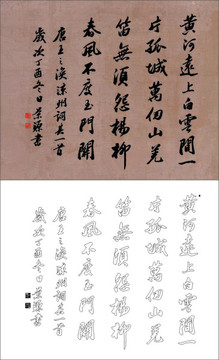 黄河遠上白雲間一
片孤城萬仞山羌
笛無須怨楊柳
春風不度玉門關
唐王之渙涼州詞其一首
歲次丁酉冬日景書
黄河遠上白雲間一
片孤城萬仞山羌
笛無須怨楊柳
春風不度玉門關
唐王之渙涼州詞其一首
歲次丁酉冬日景書